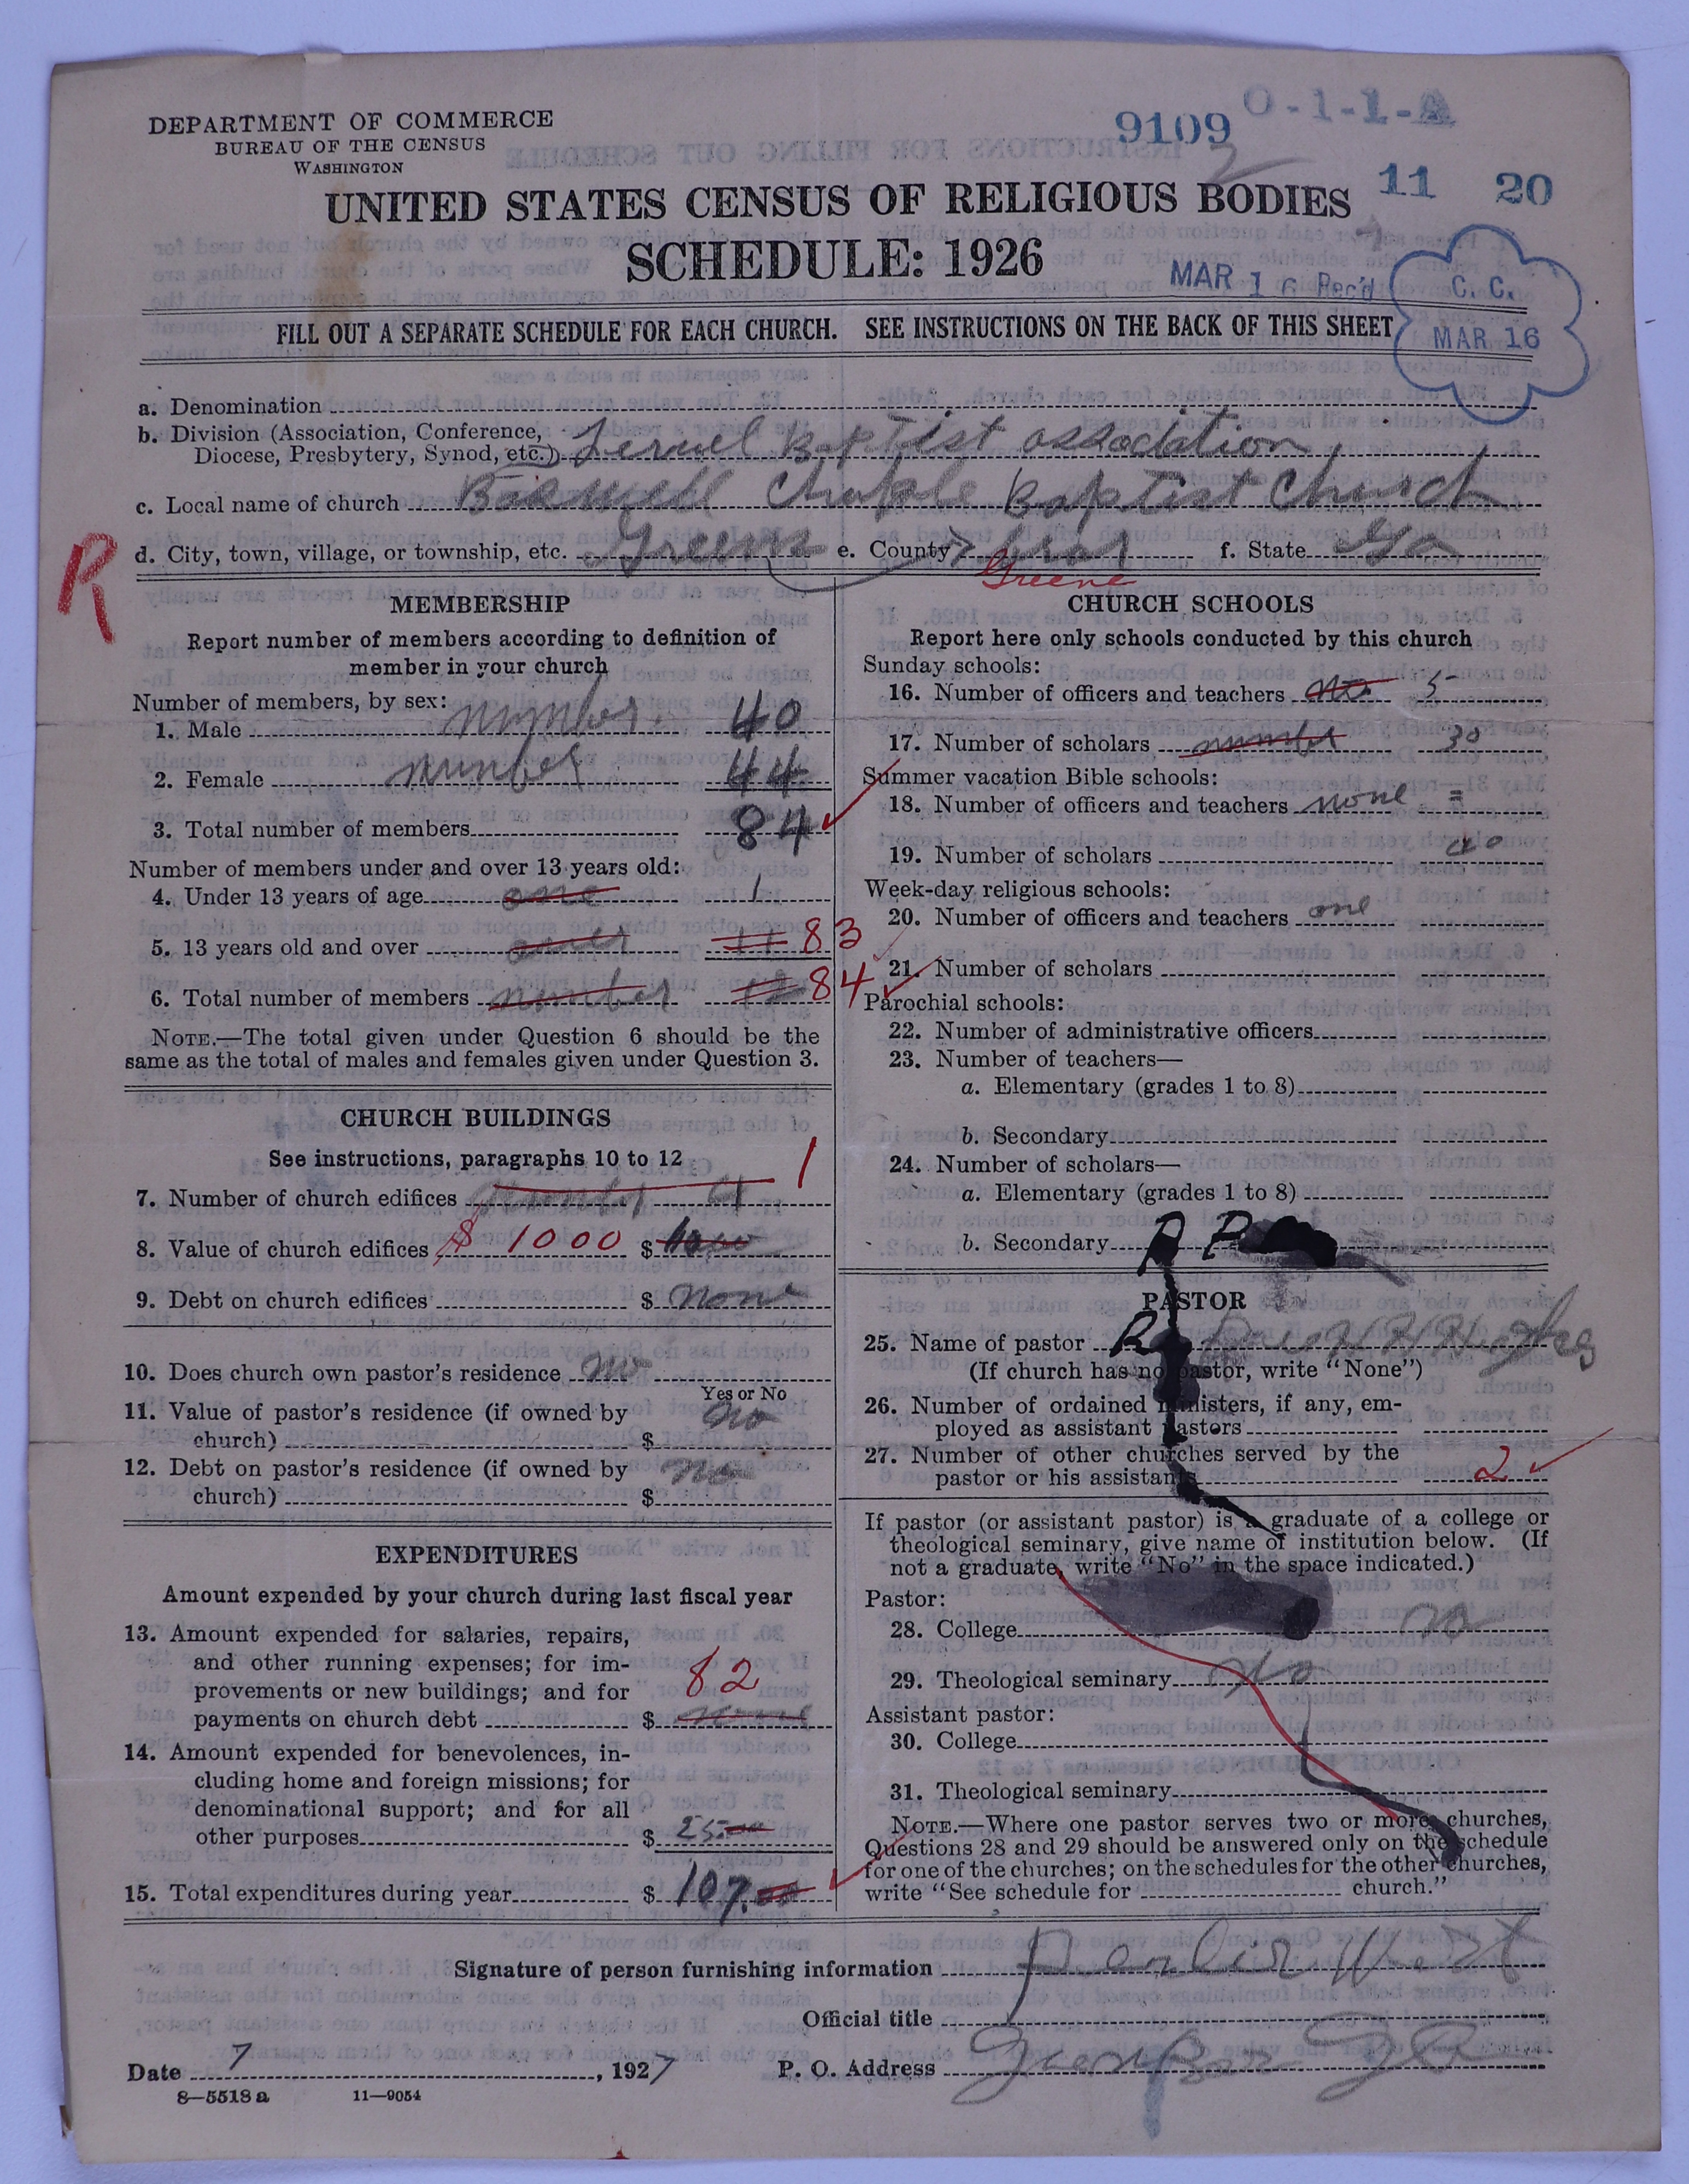 DEPARTMENT OF COMMERCE
BUREAU OF THE CENSUS
WASHINGTON
9109 O-1-1-A
11 20
UNITED STATES CENSUS OF RELIGIOUS BODIES
SCHEDULE: 1926
MAR 16 Rec'd
C. C.
MAR 16
FILL OUT A SEPARATE SCHEDULE FOR EACH CHURCH. SEE INSTRUCTIONS ON THE BACK OF THIS SHEET
a. Denomination
b. Division (Association, Conference, Diocese, Presbytery, Synod, etc.) Baptist association
c. Local name of church Chaple Baptist Church
d. City, town, village, or township, etc. e. County Greene f. State Ga
R
MEMBERSHIP
Report number of members according to definition of
member in your church
Number of members, by sex:
1. Male number 40
2. Female number 44
3. Total number of members 84
Number of members under and over 13 years old:
4. Under 13 years of age one 1
5. 13 years old and over 11 83
6. Total number of members number 12 84
NOTE.—The total given under Question 6 should be the
same as the total of males and females given under Question 3.
CHURCH BUILDINGS
See instructions, paragraphs 10 to 12
7. Number of church edifices number 1
8. Value of church edifices $ 1000 $
9. Debt on church edifices $ none
10. Does church own pastor's residence no
Yes or No
11. Value of pastor's residence (if owned by
church) $ no
12. Debt on pastor's residence (if owned by
church) $ no
EXPENDITURES
Amount expended by your church during last fiscal year
13. Amount expended for salaries, repairs,
and other running expenses; for im-
provements or new buildings; and for
payments on church debt $ none 82
14. Amount expended for benevolences, in-
cluding home and foreign missions; for
denominational support; and for all
other purposes $ 25.00
15. Total expenditures during year $ 107.00
CHURCH SCHOOLS
Report here only schools conducted by this church
Sunday schools:
16. Number of officers and teachers no. 5
17. Number of scholars number 30
Summer vacation Bible schools:
18. Number of officers and teachers none =
19. Number of scholars
Week-day religious schools:
20. Number of officers and teachers one
21. Number of scholars
Parochial schools:
22. Number of administrative officers
23. Number of teachers—
a. Elementary (grades 1 to 8)
b. Secondary
24. Number of scholars—
a. Elementary (grades 1 to 8)
b. Secondary
PASTOR
25. Name of pastor
(If church has no pastor, write "None")
26. Number of ordained ministers, if any, em-
ployed as assistant pastors
27. Number of other churches served by the
pastor or his assistants 2
If pastor (or assistant pastor) is a graduate of a college or
theological seminary, give name of institution below. (If
not a graduate, write "No" in the space indicated.)
Pastor:
28. College no
29. Theological seminary No
Assistant pastor:
30. College
31. Theological seminary
NOTE.—Where one pastor serves two or more churches,
Questions 28 and 29 should be answered only on the schedule
for one of the churches; on the schedules for the other churches,
write "See schedule for church."
Signature of person furnishing information
Official title
Date 7, 1927 P. O. Address
8—5518 a 11—9054